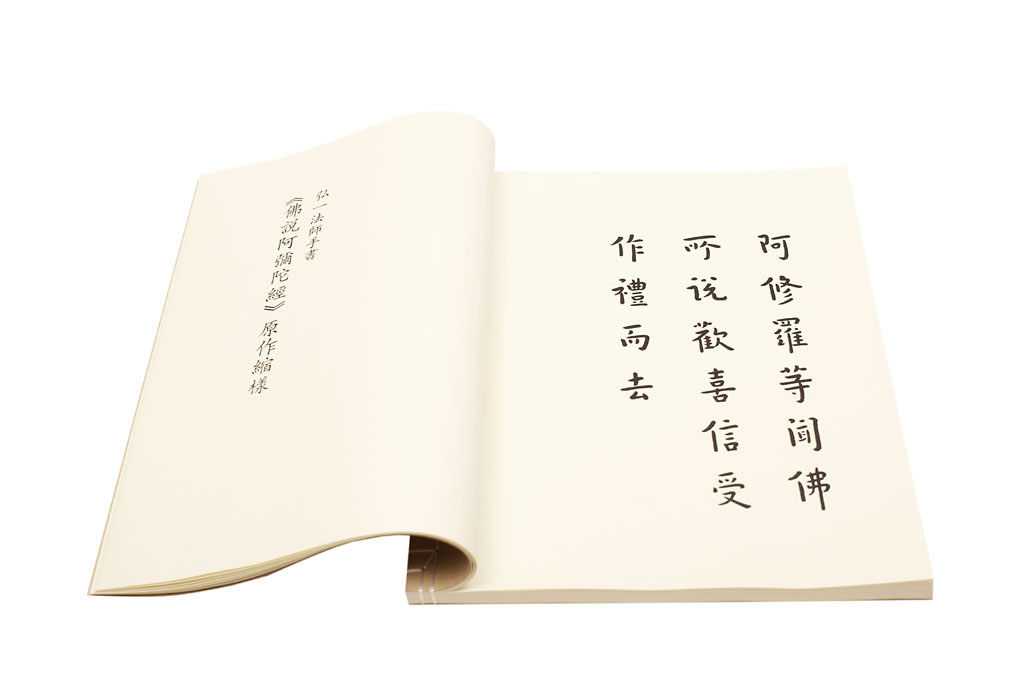 阿修羅等闻佛
所說歡喜信受
作禮而去
弘一法師手書
《佛説阿彌陀經》原作縮樣